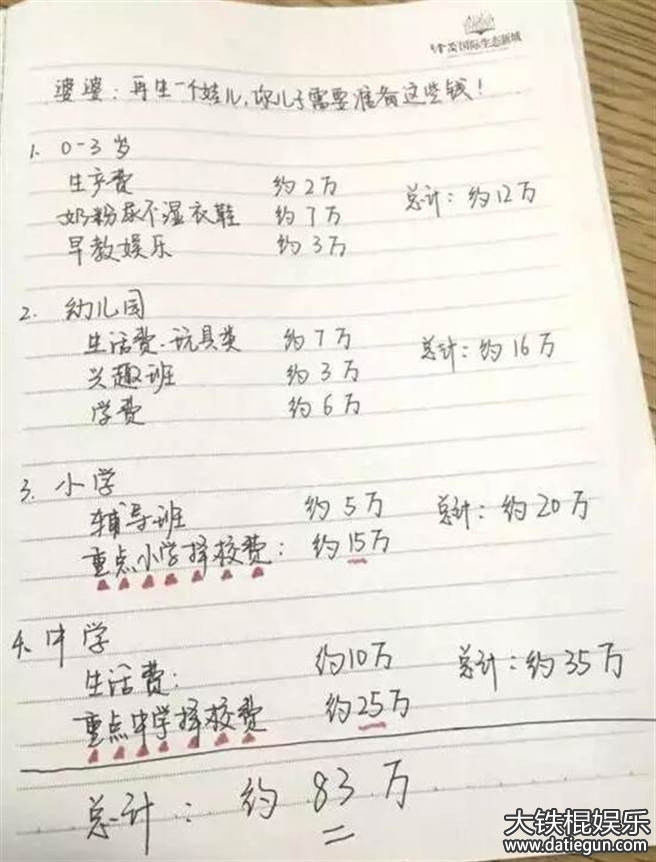 国际生态新城
婆婆：再生一个娃儿，你儿子需要准备这些钱！
1. 0-3岁
生产费 约2万
奶粉尿不湿衣鞋 约7万 总计：约12万
早教娱乐 约3万
2. 幼儿园
生活费、玩具类 约7万 总计：约16万
兴趣班 约3万
学费 约6万
3. 小学
辅导班 约5万 总计：约20万
重点小学择校费：约15万
4. 中学
生活费： 约10万 总计：约35万
重点中学择校费 约25万
总计：约83万
大铁棍娱乐
www.datiegun.com